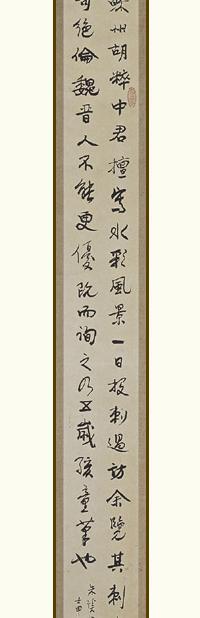 蘇州胡粹中君擅寫水彩風景一日投刺過訪余覽其刺
絕倫魏晉人不能更優既而詢之乃五歲孩童筆也